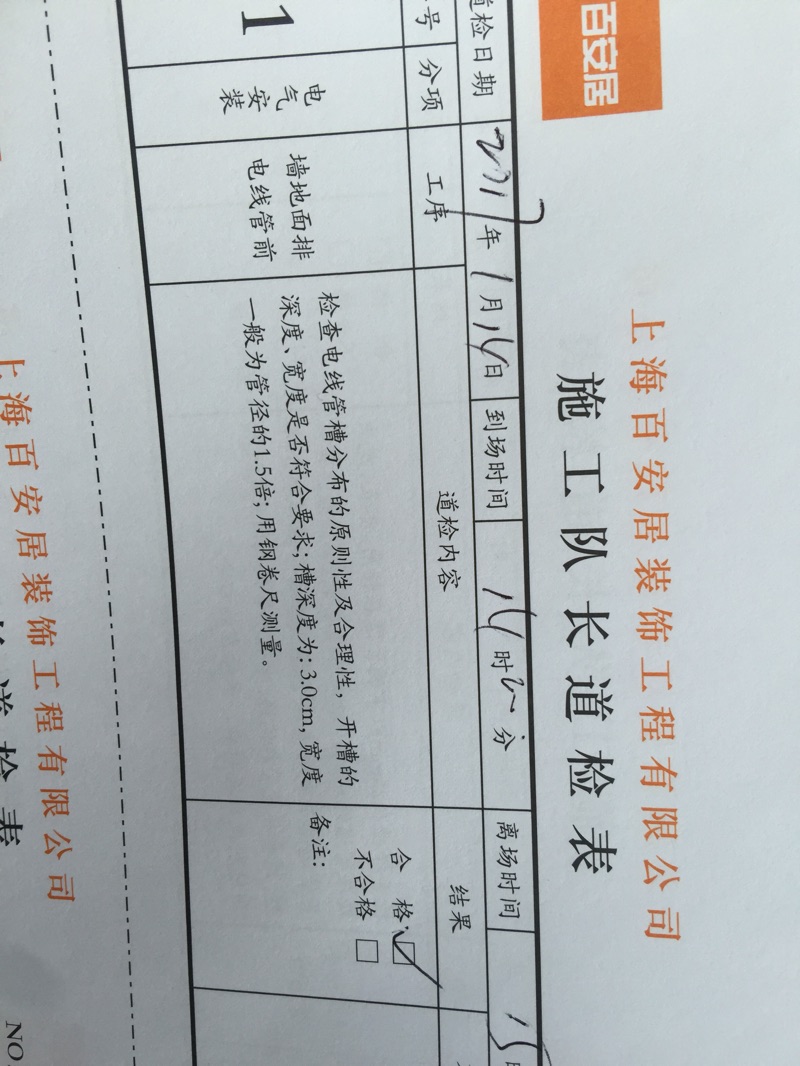 百安居
上海百安居装饰工程有限公司
施工队长道检表
道检日期 2017年1月14日 到场时间 14时 分 离场时间 15
号 分项 工序 道检内容 结果
1 电气安装 墙地面排电线管前
检查电线管槽分布的原则性及合理性，开槽的
深度、宽度是否符合要求；槽深度为：3.0cm，宽度
一般为管径的1.5倍；用钢卷尺测量。
合 格：☑
不合格 □
备注：
上海百安居装饰工程有限公司
道检表
NO